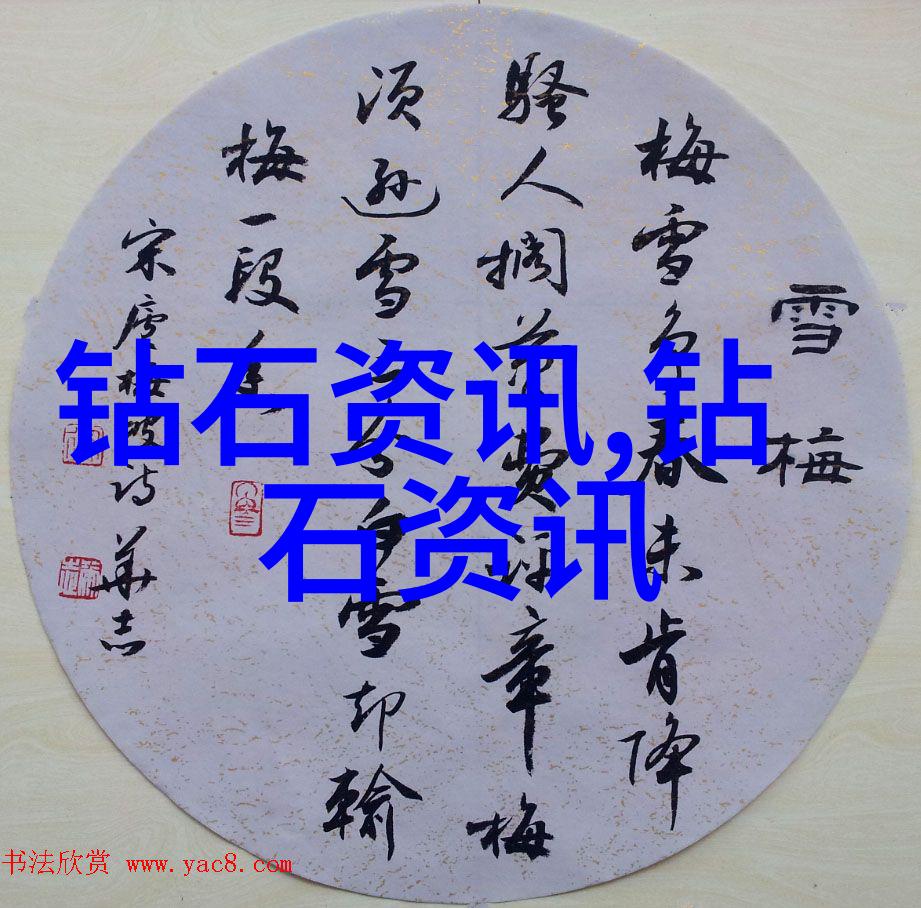 雪梅
梅雪争春未肯降
骚人搁笔费评章梅
须逊雪三分白雪却输
梅一段香
宋卢梅坡诗 华志
钻石资讯,钻
石资讯
书法欣赏 www.yac8.com